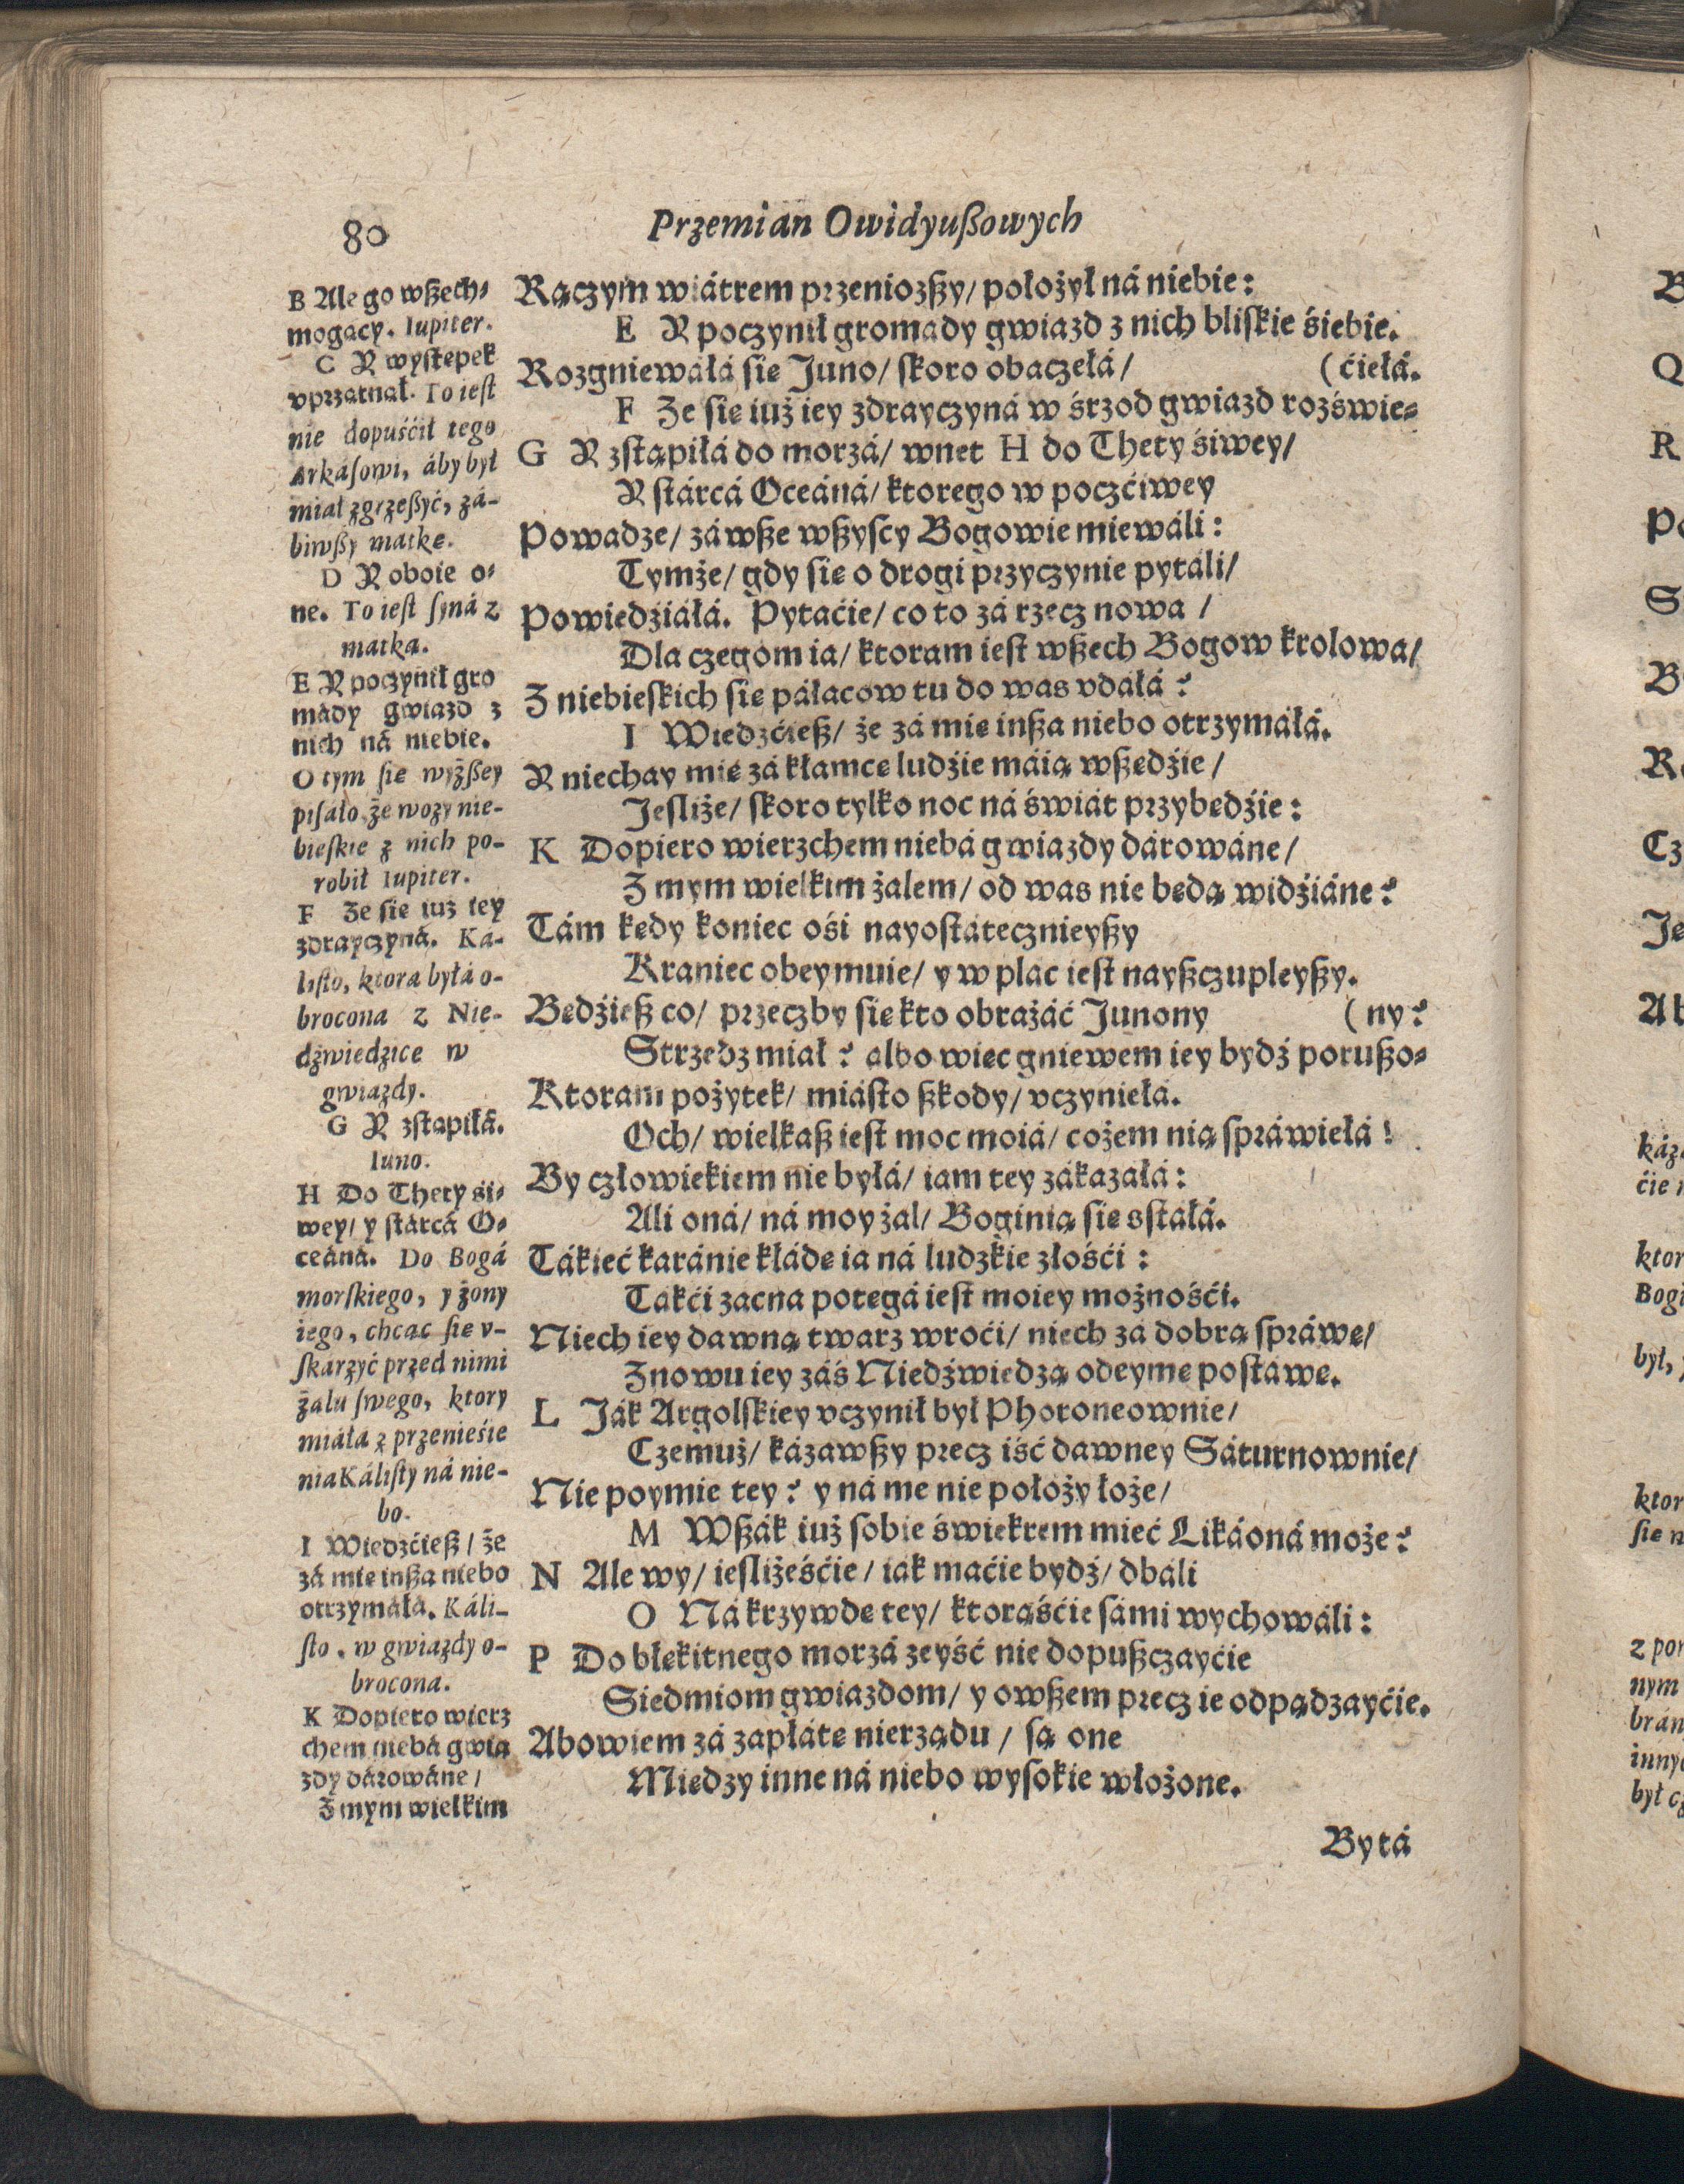 80
Przemian Owidyußowych
B Ale go wßech⸗
mogący. Iupiter.
C Y występek
vprzątnął. To iest
nie dopuśćił tego
Arkáſowi, áby był
miał zgrzeßyć, zá-
biwßy matkę.
D Y oboie o⸗
ne. To iest ſyná z
matką.
E Y poczynił gro
mády gwiazd z
nich ná niebie.
O tym ſie wyżßey
piſáło, że wozy nie-
bieſkie z nich po-
robił Iupiter.
F Że ſie iuż iey
zdrayczyná. Ká-
liſto, ktora byłá o-
brocona z Nie-
dźwiedzice w
gwiazdy.
G Y zſtąpiłá.
Iuno.
H Do Thety śi⸗
wey/ y ſtárcá O⸗
ceáná. Do Bogá
morſkiego, y żony
iego, chcąc ſie v-
ſkarżyć przed nimi
żalu ſwego, ktory
miáłá z przenieśie
nia Káliſty ná nie-
bo.
I Wiedzćieß/ że
zá mię inßa niebo
otrzymáłá. Káli-
ſto, w gwiazdy o-
brocona.
K Dopiero wierz
chem niebá gwia
zdy dárowáne/
Z mym wielkim
Rączym wiátrem przeniozßy/ położył ná niebie:
E Y poczynił gromady gwiazd z nich bliſkie śiebie.
Rozgniewáłá ſie Juno/ ſkoro obaczełá/ (ćiełá.
F Że ſie iuż iey zdrayczyná w śrzod gwiazd rozświe⸗
G Y zſtąpiłá do morzá/ wnet H do Thety śiwey/
Y ſtárcá Oceáná/ ktorego w poczćiwey
Powadze/ záwße wßyſcy Bogowie miewáli:
Tymże/ gdy ſie o drogi przyczynie pytáli/
Powiedźiáłá. Pytaćie/ co to zá rzecz nowa /
Dla czegom ia/ ktoram ieſt wßech Bogow krolowa/
Z niebieſkich ſie páłacow tu do was vdáłá?
I Wiedzćieß/ że zá mię inßa niebo otrzymáłá.
Y niechay mię zá kłamcę ludźie máią wßędźie/
Jeſliże/ ſkoro tylko noc ná świát przybędźie:
K Dopiero wierzchem niebá gwiazdy dárowáne/
Z mym wielkim żalem/ od was nie będą widźiáne?
Tám kędy koniec ośi nayoſtátecznieyßy
Kraniec obeymuie/ y w plac ieſt nayßczupleyßy.
Będźieß co/ przeczby ſie kto obrażáć Junony (ny?
Strzedz miał? albo więc gniewem iey bydź porußo⸗
Ktoram pożytek/ miáſto ßkody/ vczyniełá.
Och/ wielkaß ieſt moc moiá/ cożem nią ſpráwiełá!
By człowiekiem nie byłá/ iam tey zákazáłá:
Ali oná/ ná moy żal/ Boginią ſie sſtałá.
Tákieć karánie kłádę ia ná ludzkie złośći:
Takći zacna potęgá ieſt moiey możnośći.
Niech iey dawną twarz wroći/ niech zá dobrą ſpráwę/
Znowu iey záś Niedźwiedzą odeymę poſtawę.
L Ják Argolſkiey vczynił był Phoroneownie/
Czemuż/ kázawßy precz iść dawney Sáturnownie/
Nie poymie tey? y ná me nie położy łoże/
M Wßák iuż ſobie świekrem mieć Likáoná może?
N Ale wy/ ieſliżeśćie/ iák maćie bydź/ dbáli
O Ná krzywdę tey/ ktorąśćie ſámi wychowáli:
P Do błękitnego morzá zeyść nie dopußczayćie
Siedmiom gwiazdom/ y owßem precz ie odpądzayćie.
Abowiem zá zapłátę nierządu / ſą one
Miedzy inne ná niebo wyſokie włożone.
By tá